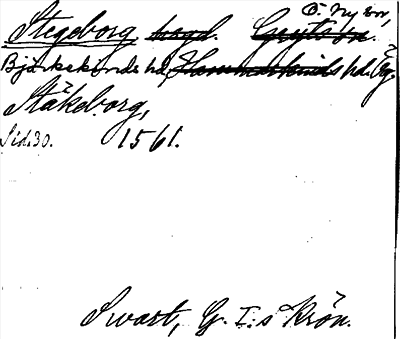 Ö. Ny sn,
Stegeborg kogd. Gryts sn.
Björkekinds hd, Hammarkinds hd. Ög.
Stäkeborg,
Sid. 30. 1561.
Swart, G. I:s Krön.